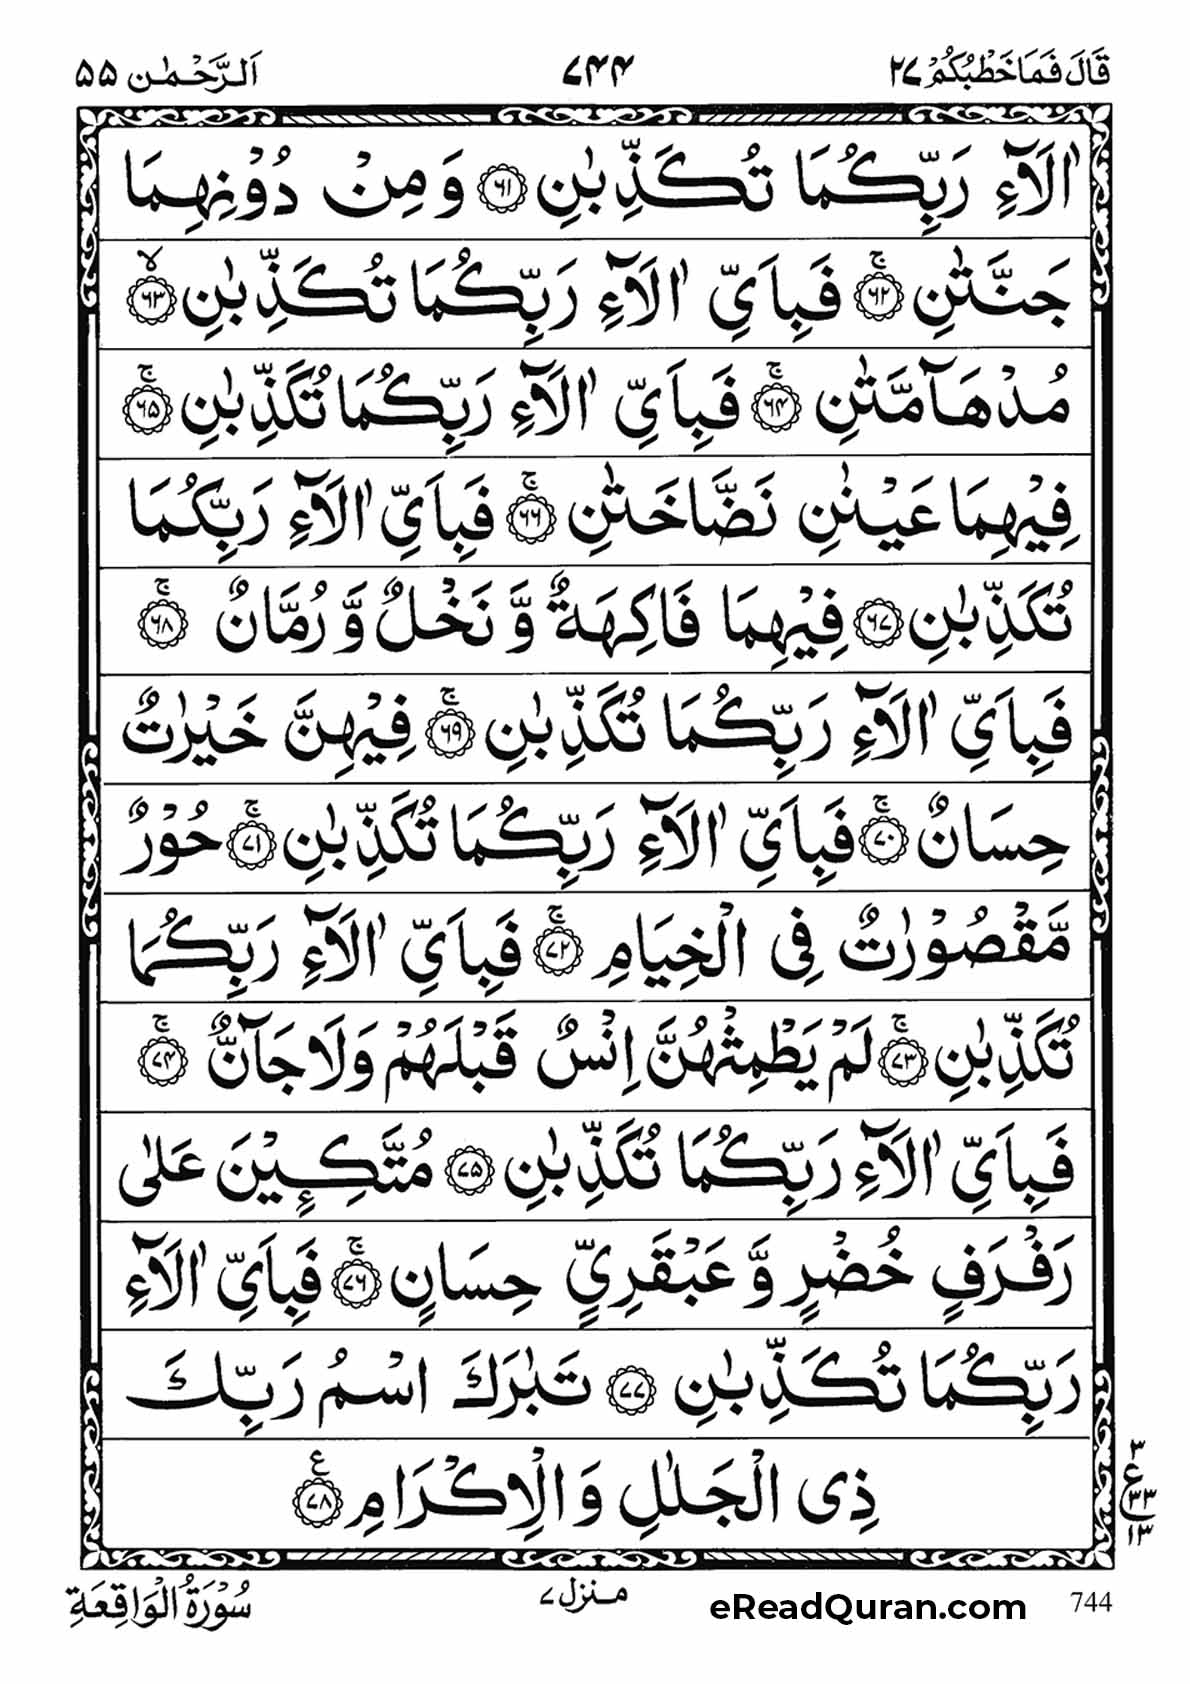 قَالَ فَمَا خَطْبُكُمْ ٢٧ ٧٤٤ اَلرَّحْمٰن ٥٥
اٰلَآءِ رَبِّكُمَا تُكَذِّبٰنِ ﴿٦١﴾ وَ مِنْ دُوْنِهِمَا
جَنَّتٰنِ ۚ﴿٦٢﴾ فَبِاَيِّ اٰلَآءِ رَبِّكُمَا تُكَذِّبٰنِ ۙ﴿٦٣﴾
مُدْهَآمَّتٰنِ ۚ﴿٦٤﴾ فَبِاَيِّ اٰلَآءِ رَبِّكُمَا تُكَذِّبٰنِ ۚ﴿٦٥﴾
فِيْهِمَا عَيْنٰنِ نَضَّاخَتٰنِ ۚ﴿٦٦﴾ فَبِاَيِّ اٰلَآءِ رَبِّكُمَا
تُكَذِّبٰنِ ﴿٦٧﴾ فِيْهِمَا فَاكِهَةٌ وَّ نَخْلٌ وَّ رُمَّانٌ ۚ﴿٦٨﴾
فَبِاَيِّ اٰلَآءِ رَبِّكُمَا تُكَذِّبٰنِ ۚ﴿٦٩﴾ فِيْهِنَّ خَيْرٰتٌ
حِسَانٌ ۚ﴿٧٠﴾ فَبِاَيِّ اٰلَآءِ رَبِّكُمَا تُكَذِّبٰنِ ۚ﴿٧١﴾ حُوْرٌ
مَّقْصُوْرٰتٌ فِي الْخِيَامِ ۚ﴿٧٢﴾ فَبِاَيِّ اٰلَآءِ رَبِّكُمَا
تُكَذِّبٰنِ ۚ﴿٧٣﴾ لَمْ يَطْمِثْهُنَّ اِنْسٌ قَبْلَهُمْ وَلَا جَآنٌّ ۚ﴿٧٤﴾
فَبِاَيِّ اٰلَآءِ رَبِّكُمَا تُكَذِّبٰنِ ﴿٧٥﴾ مُتَّكِـِٕيْنَ عَلٰى
رَفْرَفٍ خُضْرٍ وَّ عَبْقَرِيٍّ حِسَانٍ ۚ﴿٧٦﴾ فَبِاَيِّ اٰلَآءِ
رَبِّكُمَا تُكَذِّبٰنِ ﴿٧٧﴾ تَبٰرَكَ اسْمُ رَبِّكَ
ذِي الْجَلٰلِ وَ الْاِكْرَامِ ﴿٧٨﴾ ع
٣
ع
٣٣
١٣
744 eReadQuran.com منزل ٧ سُوْرَةُ الْوَاقِعَةِ